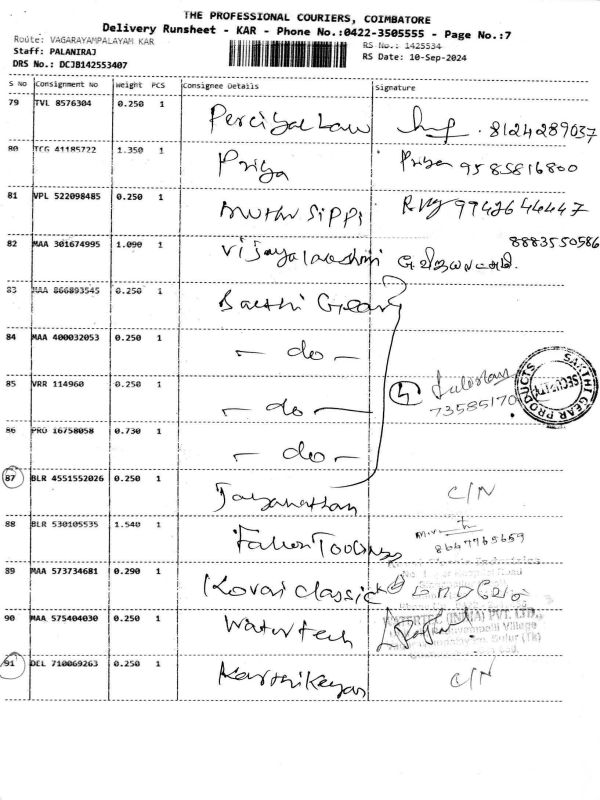 THE PROFESSIONAL COURIERS, COIMBATORE
Delivery Runsheet - KAR - Phone No.:0422-3505555 - Page No.:7
Route: VAGARAYAMPALAYAM KAR
RS No.: 1425534
Staff: PALANIRAJ
RS Date: 10-Sep-2024
DRS No.: DCJB142553407
S No Consignment No Weight PCS Consignee Details Signature
79 TVL 8576304 0.250 1 8124289037
80 TCG 41185722 1.350 1 Priya Priya 9585816800
81 VPL 522098485 0.250 1 Muthu Sippi 9942644447
8883550586
82 MAA 301674995 1.090 1 Vijayalakshmi
83 MAA 866893545 0.250 1 Sakthi Gear
84 MAA 400032053 0.250 1 - do -
85 VRR 114960 0.250 1 - do - 4 73585170
SAKTHI GEAR PRODUCTS SECURITY
86 PRO 16758058 0.730 1 - do -
87 BLR 4551552026 0.250 1 C/N
88 BLR 530105535 1.540 1 8667765659
89 MAA 573734681 0.290 1 Kovai Classic
WATERTEC (INDIA) PVT. LTD.,
90 MAA 575404030 0.250 1 Watertech
91 DEL 710069263 0.250 1 Karthikeyan C/N